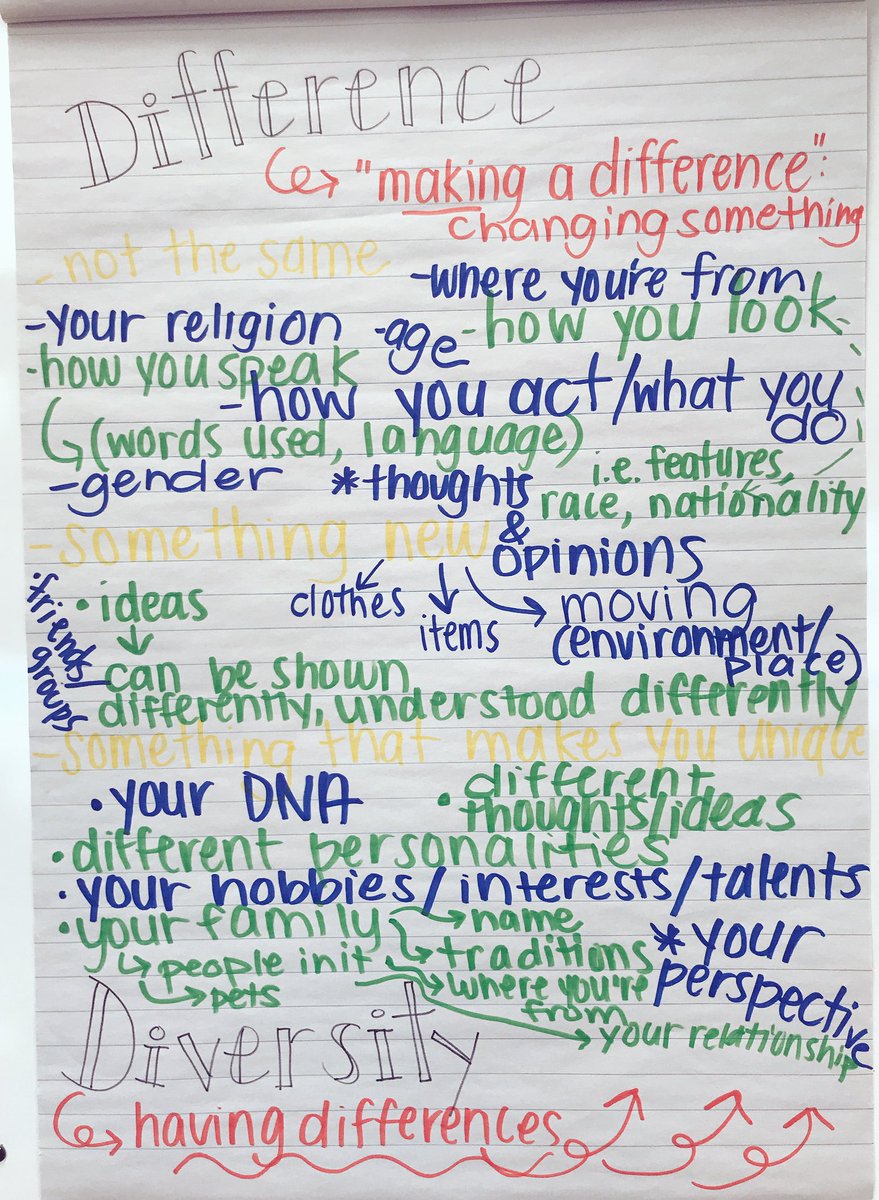 Difference
"making a difference":
changing something
-not the same
-where you're from
-your religion
-age
-how you look
-how you speak
-how you act/what you do
(words used, language)
i.e. features,
race, nationality
-gender
*thoughts
&
opinions
-something new
clothes
items
moving
(environment/
place)
•ideas
can be shown
differently, understood differently
•friends
groups
-something that makes you unique
•your DNA
•different
thoughts/ideas
•different personalities
•your hobbies/interests/talents
•your family
name
traditions
where you're
from
your relationship
people in it
pets
*your
perspective
Diversity
having differences